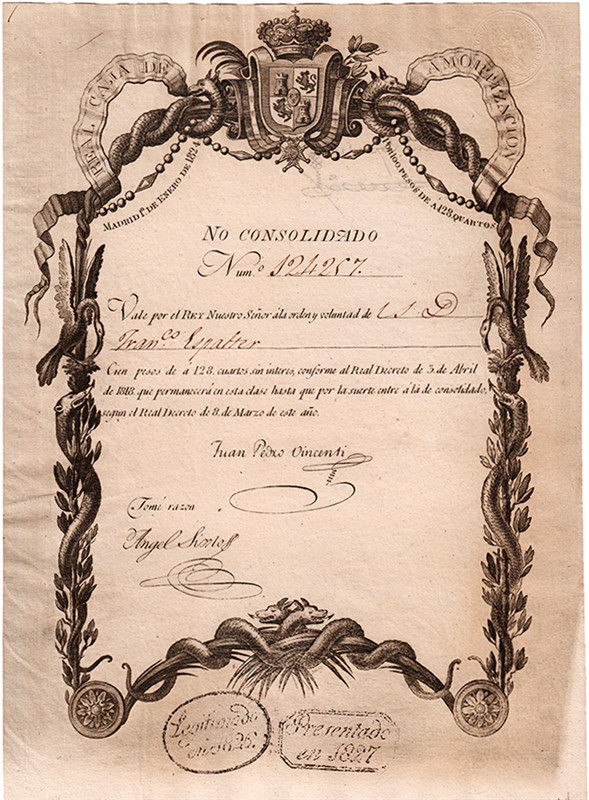 REAL CAJA DE
AMORTIZACION
MADRID 1º DE ENERO DE 1824
POR 100 PESOS DE A 128 QUARTOS
NO CONSOLIDADO
Num.º 124257.
Vale por el REY Nuestro Señor á la orden y voluntad de
Fran.co Espalter
Cien pesos de á 128 cuartos sin interes, conforme al Real Decreto de 3 de Abril
de 1818, que permanecerá en esta clase hasta que por la suerte entre á la de consolidado,
segun el Real Decreto de 8 de Marzo de este año.
Juan Pedro Vincenti
Tomé razon
Angel
Legitimado
en 1826
Presentado
en 1827